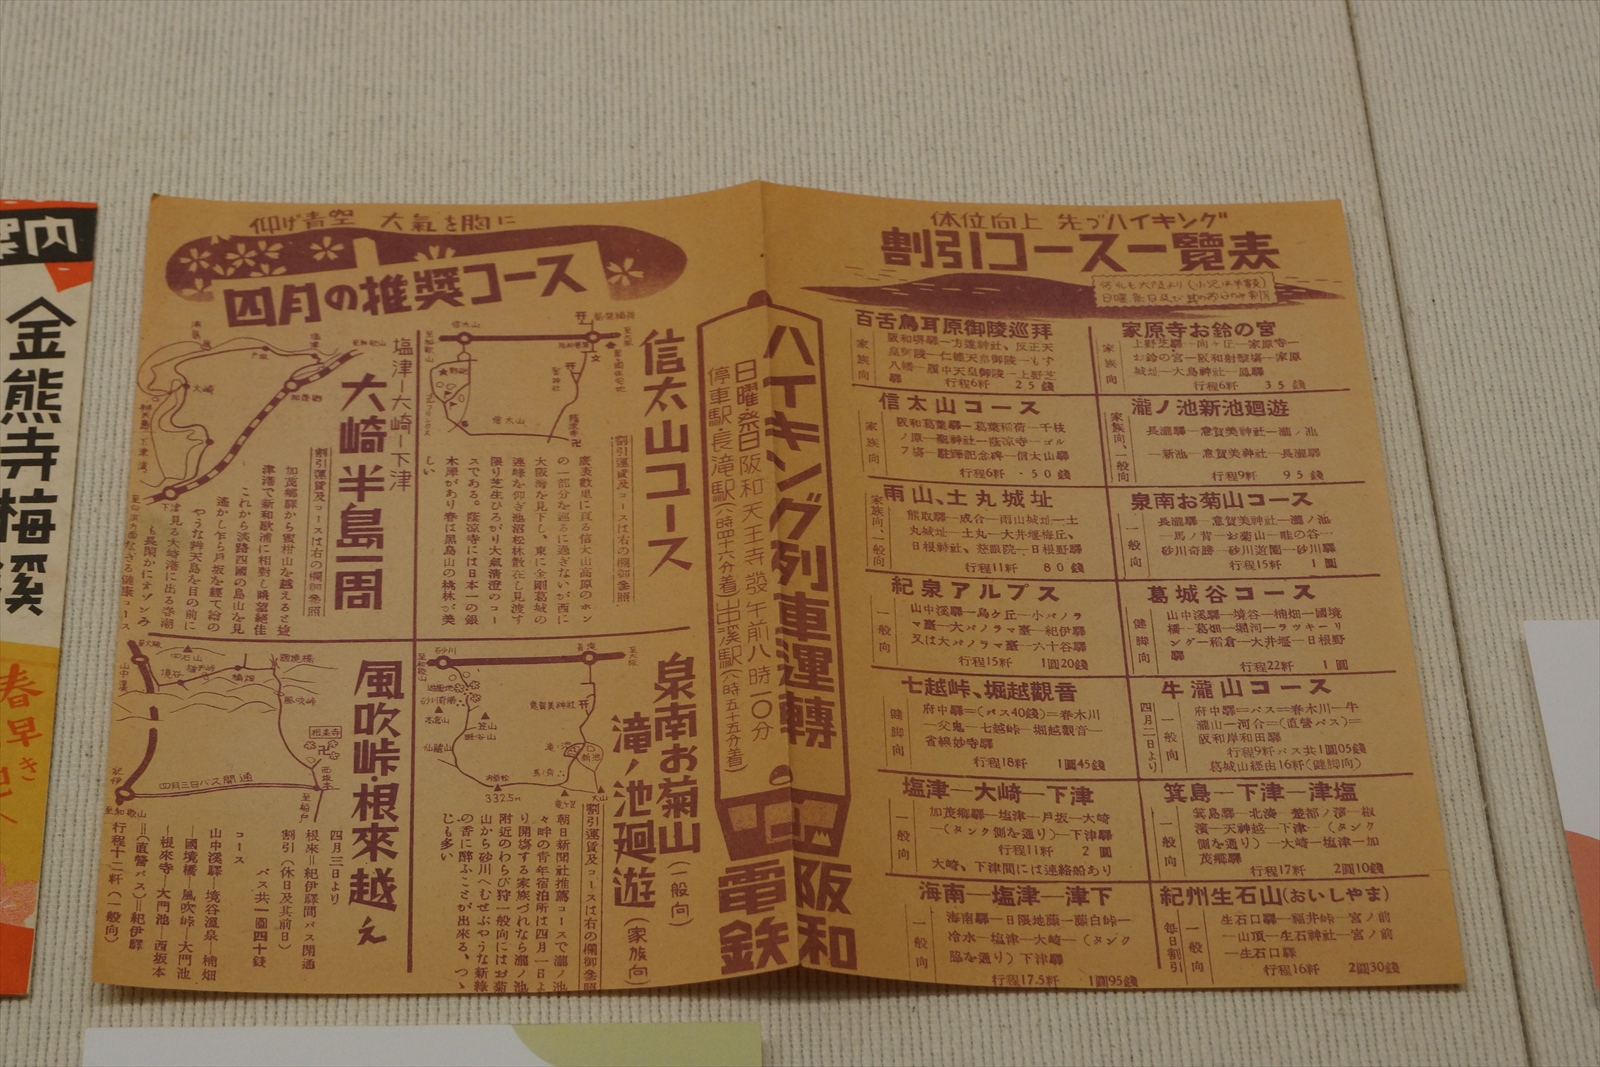 体位向上 先づハイキング
割引コース一覧表
百舌鳥耳原御陵巡拝
家族向
阪和堺驛―方違神社、反正天
皇御陵―仁徳天皇御陵―もず
八幡―履中天皇御陵―上野芝
驛
行程6粁 25錢
家原寺お鈴の宮
家族向
上野芝驛―向ヶ丘―家原寺―
お鈴の宮―阪和射撃場―家原
城址―大鳥神社―鳳驛
行程6粁 35錢
信太山コース
家族向
阪和葛葉驛―葛葉稲荷―千枝
ノ原―聖神社―蔭凉寺―ゴル
フ場―駐蹕記念碑―信太山驛
行程6粁 ・50錢
瀧ノ池新池廻遊
家族向、一般向
長瀧驛―意賀美神社―瀧ノ池
―新池―意賀美神社―長瀧驛
行程9粁 95錢
雨山、土丸城址
家族向、一般向
熊取驛―成合―雨山城址―土
丸城址―土丸―大井堰梅丘、
日根神社、慈眼院―日根野驛
行程11粁 80錢
泉南お菊山コース
一般向
長瀧驛―意賀美神社―瀧ノ池
―馬ノ背―お菊山―畦の谷―
砂川奇勝―砂川遊園―砂川驛
行程15粁 1圓
紀泉アルプス
一般向
山中溪驛―鳥ケ丘―小パノラ
マ臺―大パノラマ臺―紀伊驛
又は大パノラマ臺―六十谷驛
行程15粁 1圓20錢
葛城谷コース
健脚向
山中溪驛―境谷―楠畑―國境
橋―葛畑―堀河―ラッキーリ
ンダー稲倉―大井堰―日根野
驛
行程22粁 1圓
七越峠、堀越觀音
健脚向
府中驛=(バス40錢)=春木川
―父鬼―七越峠―堀越觀音―
省線妙寺驛
行程18粁 1圓45錢
牛瀧山コース
四月二日より
一般向
府中驛=バス=春木川―牛
瀧山―河合=(直營バス)=
阪和岸和田驛
行程9粁バス共1圓05錢
葛城山経由16粁(健脚向)
塩津―大崎―下津
一般向
加茂郷驛―塩津―戸坂―大崎
―(タンク側を通り)―下津驛
行程11粁 2圓
大崎、下津間には連絡船あり
箕島―下津―津塩
一般向
箕島驛―北湊―椒
濱―天神越―下津―(タンク
側を通り)―大崎―塩津―加
茂郷驛
行程17粁 2圓10錢
海南―塩津―津下
一般向
海南驛―日限地藏―藤白峠―
冷水―塩津―大崎―(タンク
脇を通り)下津驛
行程17.5粁 1圓95錢
紀州生石山(おいしやま)
毎日割引
一般向
生石口驛―福井峠―宮ノ前
―山頂―生石神社―宮ノ前
―生石口驛
行程16粁 2圓30錢
ハイキング列車運轉
日曜・祭日阪和天王寺發午前八時一〇分
停車駅・長滝駅(八時四十六分着)山中溪駅(八時五十五分着)
阪和
電鉄
仰げ青空 大氣を胸に
四月の推奬コース
信太山コース
割引運賃及コースは右の欄御參照
廣袤數里に亘る信太山高原のホン
の一部分を巡るに過ぎないが西に
大阪灣を見下し、東に金剛葛城の
連峰を仰ぎ池沼松林散在し見渡す
限り芝生ひろがり大氣清澄のコー
スである。蔭涼寺には日本一の銀
木犀があり春は黒鳥山の桃林が美
しい
信太山
聖神社
蔭凉寺
塩津―大崎―下津
大崎半島一周
割引運賃及コースは右の欄御參照
加茂郷驛から蜜柑山を越えると塩
津港で新和歌浦に相對し眺望絶佳
これから淡路四國の島山を見
遙かし乍ら戸坂を經て繪の
やうな辨天島を目の前に
下津見る大崎港に出る春潮
も長閑かにオゾンみ
なぎる健康コース
大崎
加茂郷
泉南お菊山(一般向)
滝ノ池廻遊(家族向)
割引運賃及コースは右の欄御參照
朝日新聞社推薦コースで瀧ノ池
々畔の青年宿泊所は四月一日よ
り開塲する家族づれなら瀧ノ池
附近のわらび狩一般向にはお菊
山から砂川へむせぶやうな新綠
の香に醉ふことが出來る、つゝ
じも多い
砂川
長滝
砂川奇勝
意賀美神社
高倉山
笠山
畦谷山
332.5m
風吹峠・根來越え
四月三日より
根來=紀伊驛間バス開通
割引(休日及其前日)
バス共一圓四十錢
コース
山中溪驛―境谷溫泉―楠畑
―國境橋―風吹峠―大門池
―根來寺―大門池―西坂本
=(直營バス)=紀伊驛
行程十二粁(一般向)
至大阪
山中溪
境谷
楠畑
國境橋
風吹峠
根來寺
西坂本
四月三日バス開通
紀伊
至和歌山
案内
金熊寺梅溪
春早き